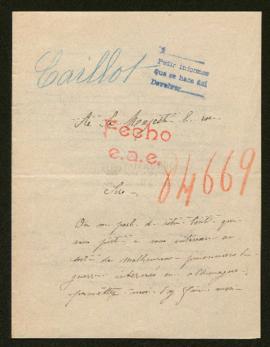 Caillot
Pedir informes
que se hace así
Devolver
A Sa Majesté le roi
Fecho
e.a.e.
84669
Sire
On m'a parlé de votre bonté qui
vous porte à vous intéresser au
sort de malheureux prisonniers de
guerre internés en Allemagne
permettez moi d'y faire